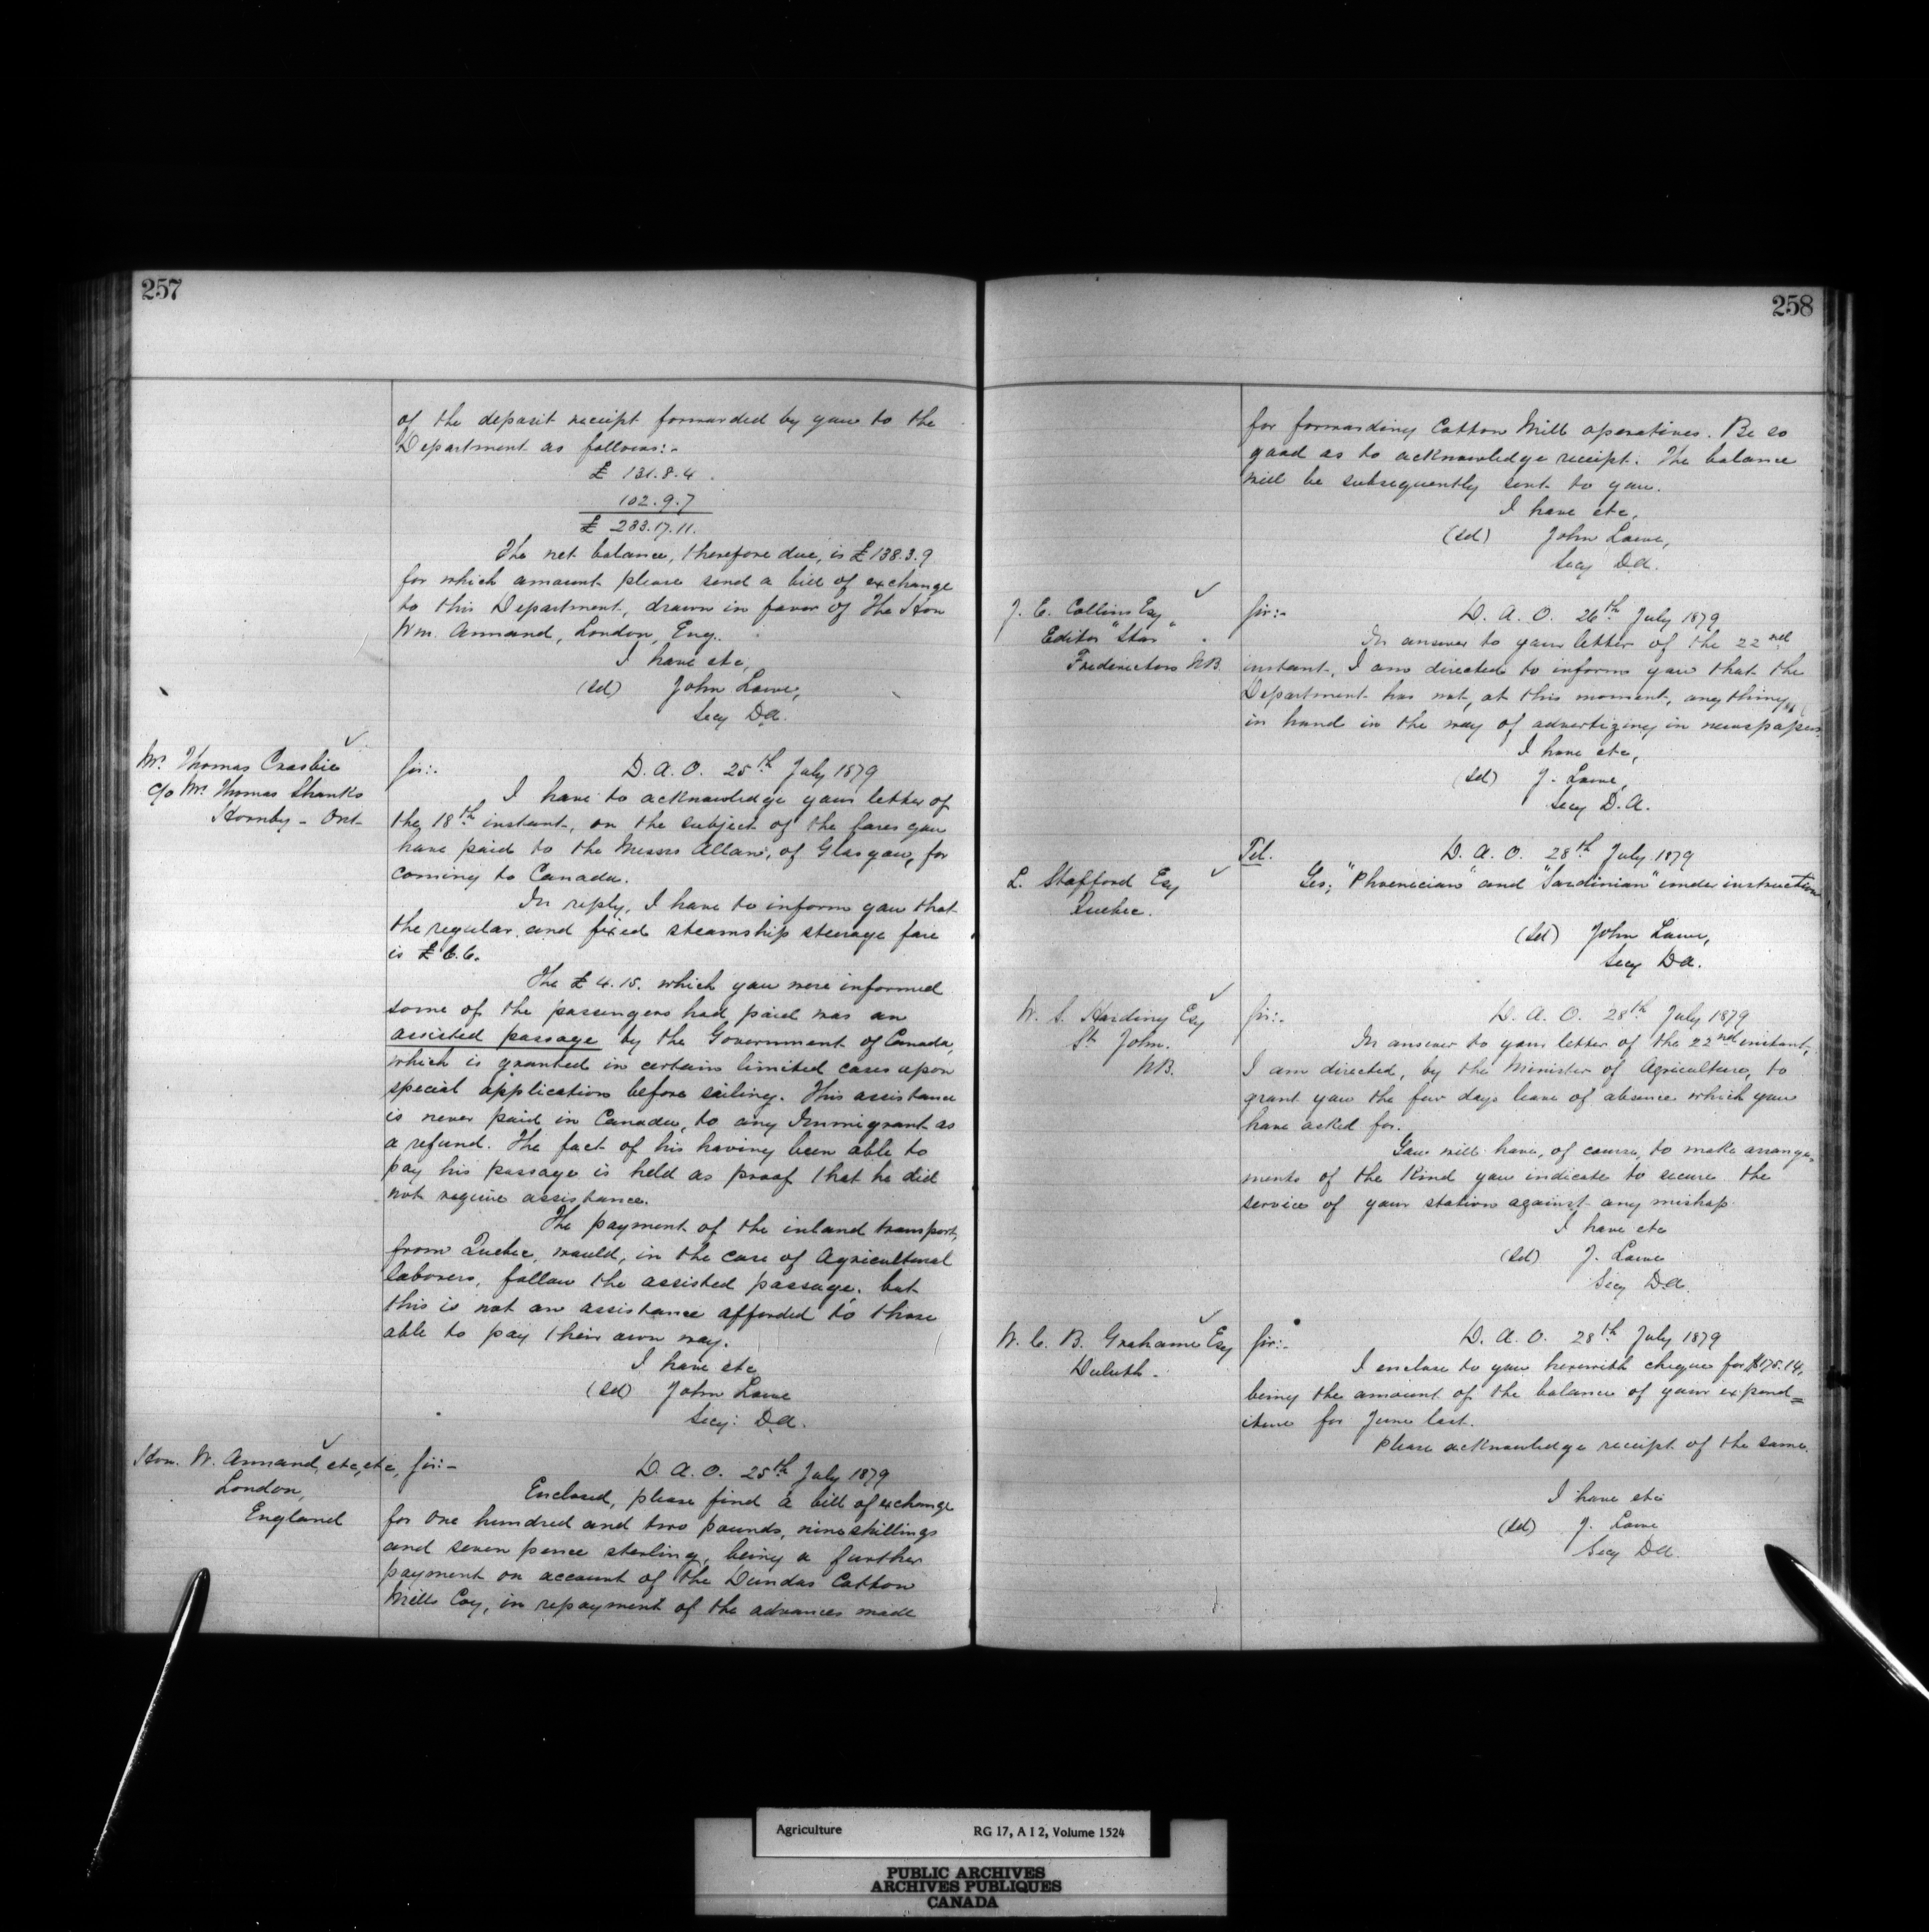 257
of the deposit receipt forwarded by you to the
Department as follows:-
£ 131.8.4
102.9.7
£ 233.17.11.
The net balance, therefore due, is £138.3.9
for which amount please send a bill of exchange
to this Department, drawn in favor of The Hon
Wm. Annand, London, Eng.
I have etc,
(sd) John Lowe,
Secy D.A.
Mr. Thomas Crosbie
c/o Mr. Thomas Shanks
Hornby - Ont-
Sir:-
D. A. O. 25th July 1879
I have to acknowledge your letter of
the 18th instant, on the subject of the fares you
have paid to the Messrs Allans, of Glasgow, for
coming to Canada.
In reply, I have to inform you that
the regular and fixed steamship steerage fare
is £6.6.
The £4.15. which you were informed
some of the passengers had paid was an
assisted passage by the Government of Canada,
which is granted in certain limited cases upon
special application before sailing. This assistance
is never paid in Canada, to any Immigrant as
a refund. The fact of his having been able to
pay his passage is held as proof that he did
not require assistance.
The payment of the inland transport,
from Quebec, would, in the case of Agricultural
laborers, follow the assisted passage, but
this is not an assistance afforded to those
able to pay their own way.
I have etc
(sd) John Lowe
Secy: D.A.
Hon. W. Annand, etc, etc,
London,
England
Sir:-
D. A. O. 25th July 1879
Enclosed, please find a bill of exchange
for One hundred and two pounds, nine shillings
and seven pence sterling, being a further
payment on account of the Dundas Cotton
Mills Coy, in repayment of the advances made
258
for forwarding Cotton Mill operatives. Be so
good as to acknowledge receipt. The balance
will be subsequently sent to you.
I have etc,
(sd) John Lowe,
Secy D.A.
J. E. Collins Esq
Editor "Star"
Fredericton N.B.
Sir:-
D. A. O. 26th July 1879
In answer to your letter of the 22nd
instant, I am directed to inform you that the
Department has not, at this moment, any thing
in hand in the way of advertizing in newspapers.
I have etc,
(sd) J. Lowe,
Secy D.A.
L. Stafford Esq
Quebec.
Tel.
D. A. O. 28th July 1879
Yes; "Phoenician" and "Sardinian" under instruction
(sd) John Lowe,
Secy D.A.
W. S. Harding Esq
St. John.
N.B.
Sir:-
D. A. O. 28th July 1879
In answer to your letter of the 22nd instant,
I am directed, by the Minister of Agriculture, to
grant you the few days leave of absence which you
have asked for.
You will have, of course, to make arrange-
ments of the kind you indicate to secure the
service of your station against any mishap.
I have etc
(sd) J. Lowe
Secy D.A.
W. C. B. Grahame Esq
Duluth.
Sir:-
D. A. O. 28th July 1879
I enclose to you herewith cheque for $175.14,
being the amount of the balance of your expend=
iture for June last.
Please acknowledge receipt of the same.
I have etc
(sd) J. Lowe
Secy D.A.
Agriculture RG 17, A I 2, Volume 1524
PUBLIC ARCHIVES
ARCHIVES PUBLIQUES
CANADA